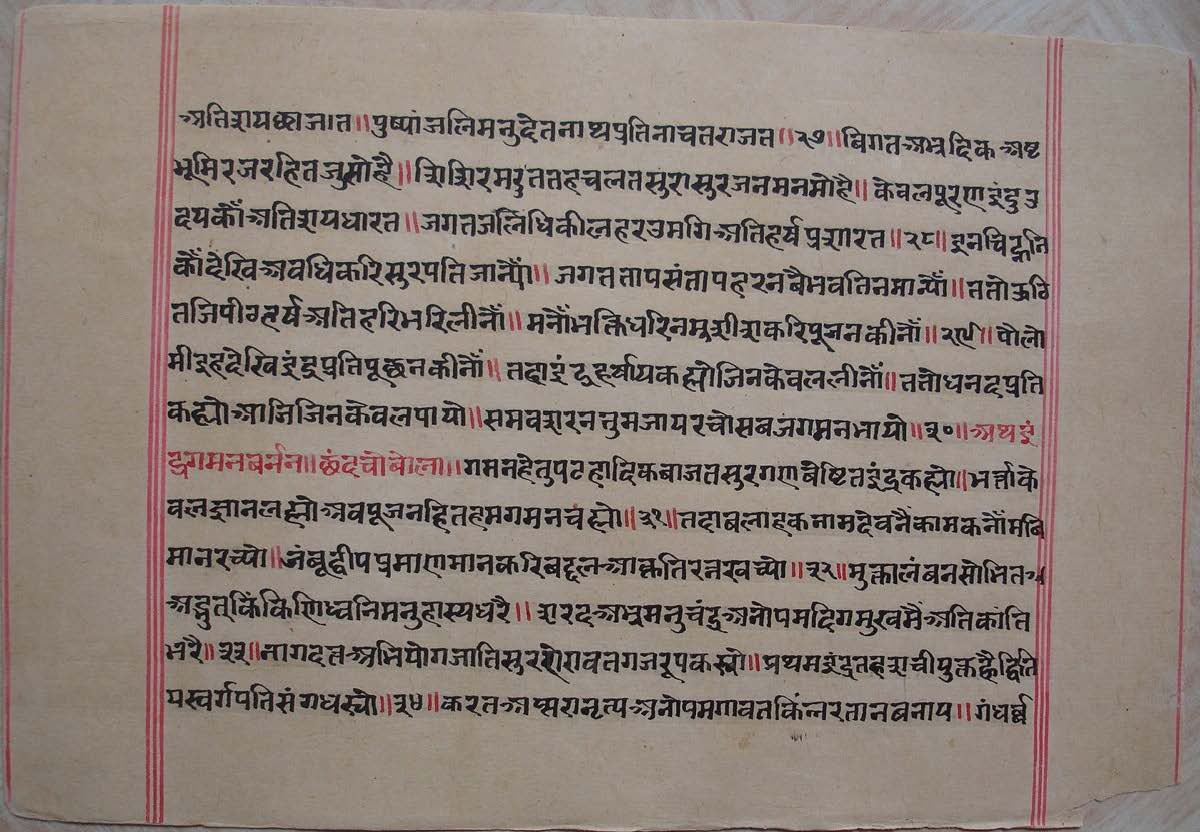 अतिशयछाजात॥पुष्पांजलिमनुदेतनाथप्रतिनाचतराजत॥२७॥बिगतअभ्रदिकअष्ट
भूमिरजरहितजुसोहै॥शिशिरमरुततहचलतसुरासुरजनमनमोहै॥केवलपूरणइंदुउ
दयकौंअतिशयधारत॥जगतजलनिधिकीलहरउमगिअतिहर्षप्रशारत॥२८॥इनचिह्ननि
कौंदेखिअवधिकरिसुरपतिजान्यौं॥जगततापसंतापहरनवैभवतिनमान्यौं॥ततोऊठि
तजिपीठहर्षअतिहरिभरिलीनौं॥मनौंभक्तिधरिनमृशीशकरिपूजनकीनौं॥२९॥पोलो
मीइहदेखिइंद्रप्रतिपूछनकीनौं॥तहाइंद्रहर्षायकह्योजिनकेवललीनौं॥ततोधनदप्रति
कह्योआजिजिनकेवलपायो॥समवशरनतुमजायरचोसबजगमनभायो॥३०॥अथइं
द्रगमनबर्नन॥छंदचोबोला॥गमनहेतुपटहादिकबाजतसुरगणबेष्टितइंद्रकह्यो॥भर्त्ताके
वलज्ञानलह्योअवपूजनहितहमगमनचह्यो॥३१॥तदाबलाहकनामदेवनैकामकनौंमबि
मानरच्यो॥जंबूद्वीपप्रमाणमानकरिबद्दलआकृतिरत्नखच्यो॥३२॥मुक्तालंबनसोभित
अद्भुतकिंकिणिध्वनिमनुहास्यधरै॥शरदअभ्रमनुचंद्रअनोपमदिगमुखमैंअतिकांति
भरै॥३३॥नागदतअभियोगजातिसुरऐरावतगजरूपकस्यो॥प्रथमइंद्रतहशचीपुक्तह्वैद्विति
यस्वर्गपतिसंगधस्यो॥३४॥करतअप्सरानृत्यअनोपमगावतकिंनरतानबनाय॥गंधर्ब